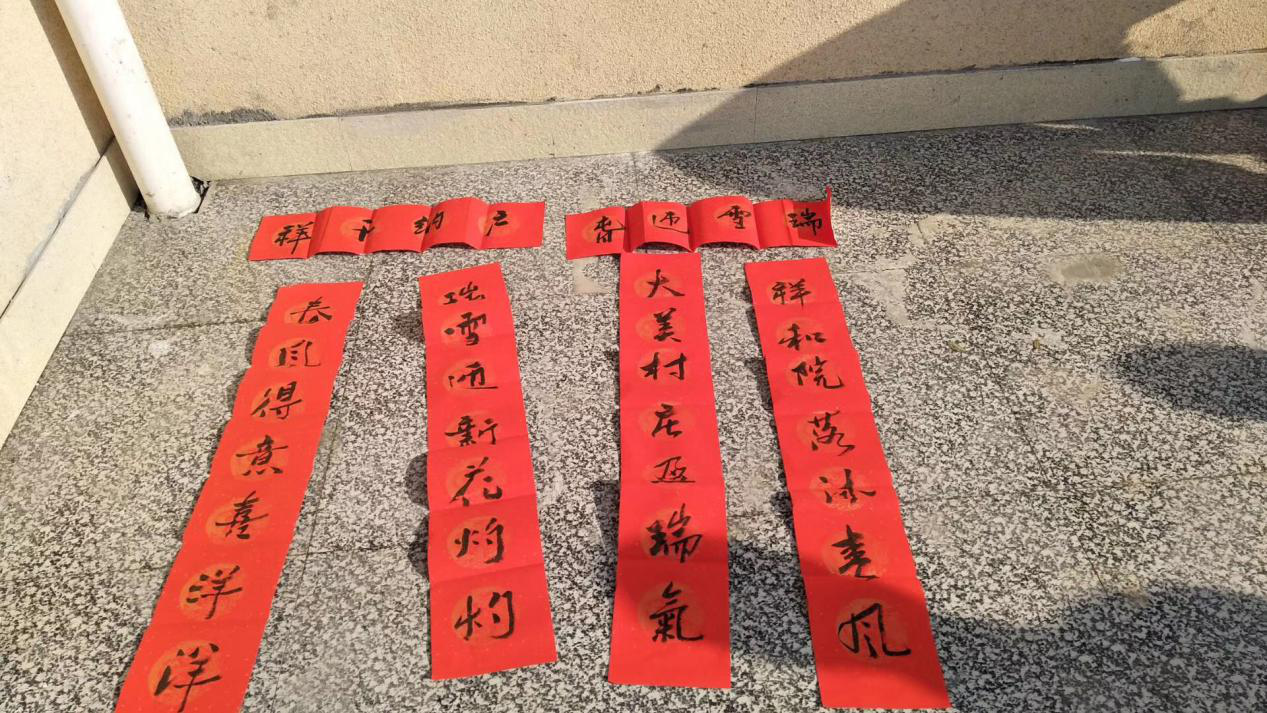 瑞雪迎春
户纳千祥
祥和院落沐春风
大美村庄盈瑞氣
瑞雪迎新花灼灼
春风得意喜洋洋